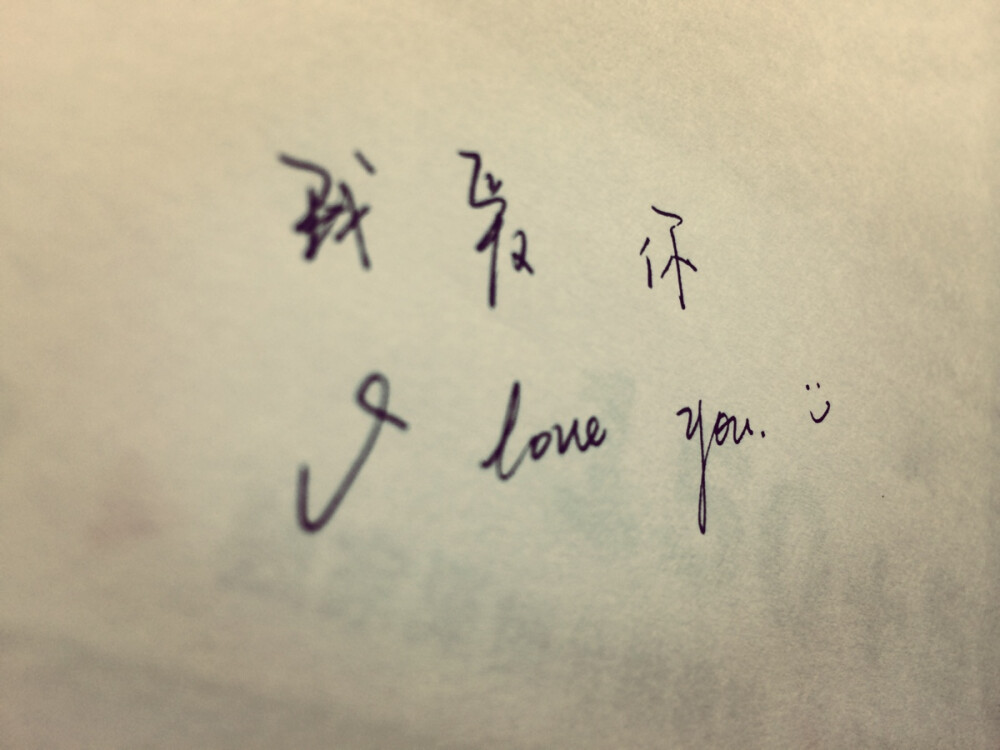 我爱你
I love you. :)